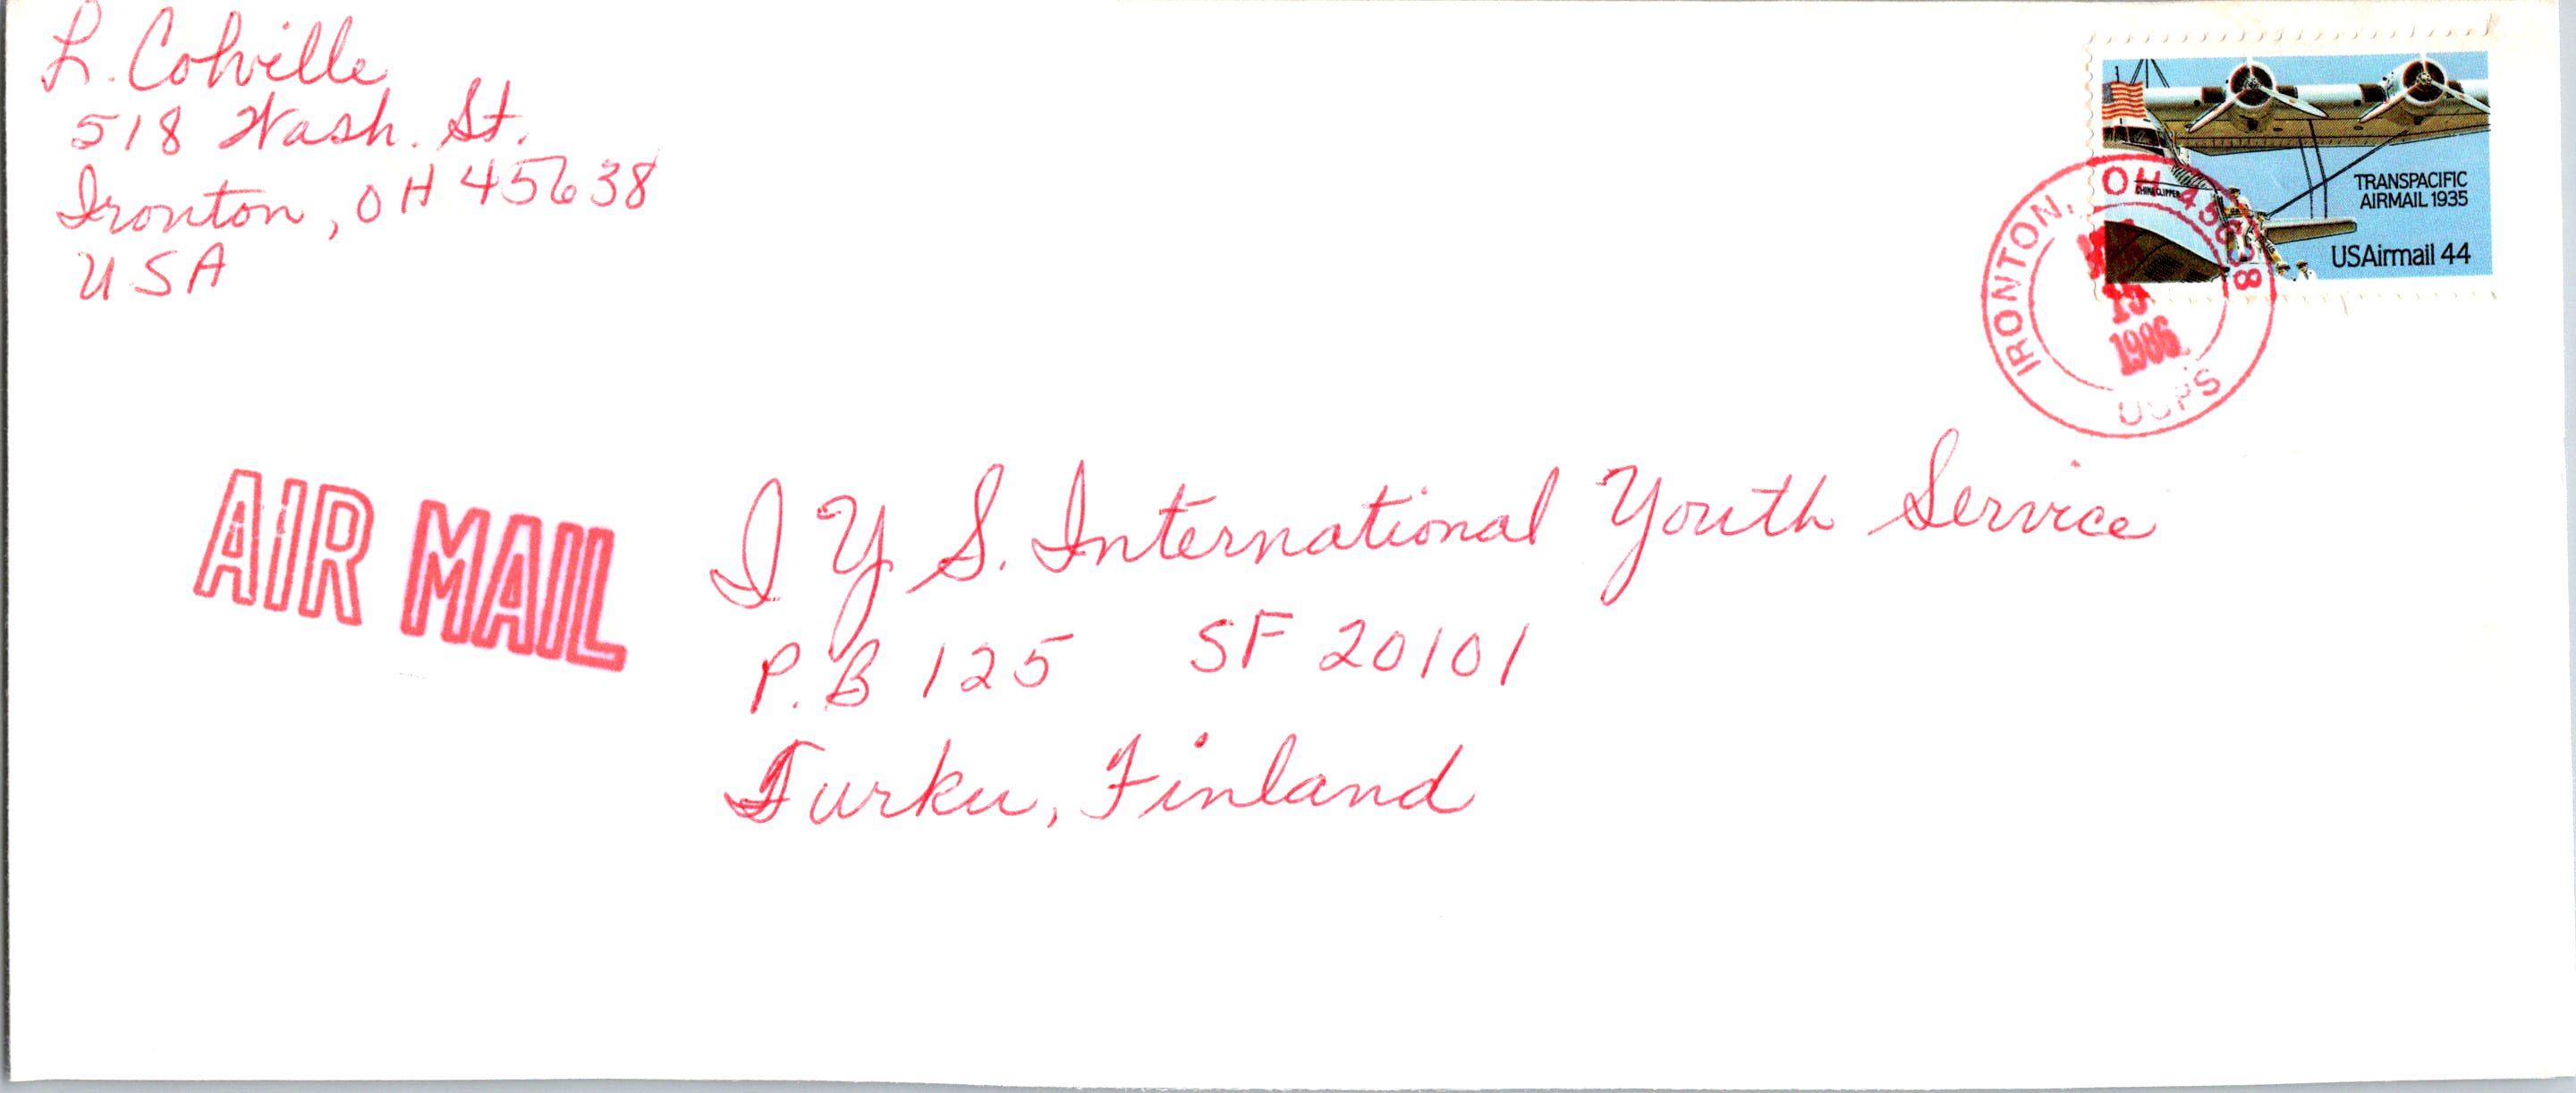 L. Colville
518 Wash. St.
Ironton, OH 45638
USA
CHINA CLIPPER
TRANSPACIFIC
AIRMAIL 1935
USAirmail 44
IRONTON, OH 45638
15
1986
USPS
AIR MAIL
I Y S. International Youth Service
P.B 125 SF 20101
Turku, Finland